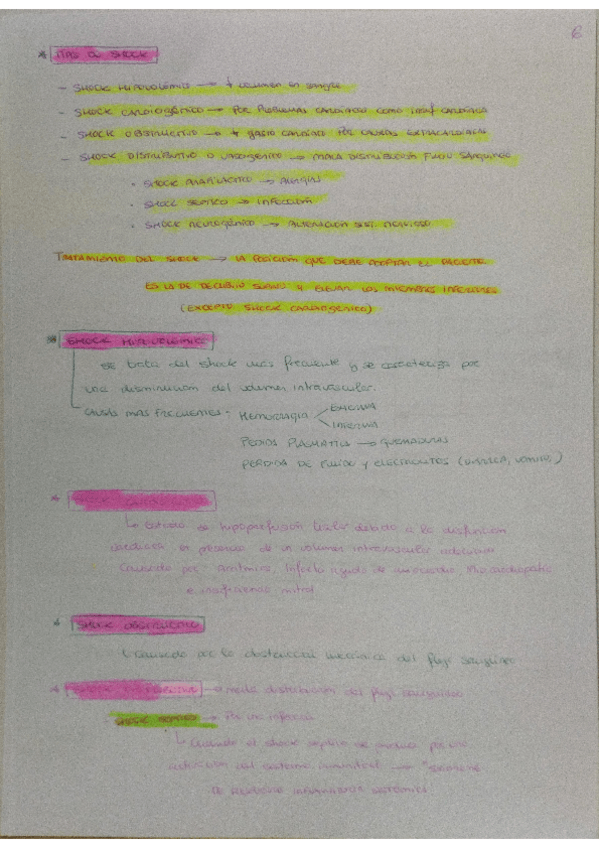 6
* TIPOS DE SHOCK
- SHOCK HIPOVOLÉMICO → ↓ volumen en sangre
- SHOCK CARDIOGÉNICO → POR PROBLEMAS CARDÍACOS COMO INSUF CARDÍACA
- SHOCK OBSTRUCTIVO → ↓ gasto CARDÍACO POR CAUSAS EXTRACARDÍACAS
- SHOCK DISTRIBUTIVO O VASOGÉNICO → MALA DISTRIBUCIÓN FLUJO SANGUÍNEO
• SHOCK ANAFILÁCTICO → ALERGIAS
• SHOCK SÉPTICO → INFECCIÓN
• SHOCK NEUROGÉNICO → ALTERACIÓN SIST. NERVIOSO
TRATAMIENTO DEL SHOCK → LA POSICIÓN QUE DEBE ADOPTAR EL PACIENTE
ES LA DE DECÚBITO SUPINO Y ELEVAR LOS MIEMBROS INFERIORES
(EXCEPTO SHOCK CARDIOGÉNICO)
* SHOCK HIPOVOLÉMICO
se trata del shock más frecuente y se caracteriza por
una disminución del volumen intravascular.
CAUSAS MÁS FRECUENTES - HEMORRAGIA EXTERNA
INTERNA
PÉRDIDAS PLASMÁTICAS → QUEMADURAS
PÉRDIDA DE FLUIDO Y ELECTROLITOS (DIARREA, VÓMITOS..)
* SHOCK
↳ Estado de hipoperfusión tisular debido a la disfunción
cardiaca en presencia de un volumen intravascular adecuado
Causado por arritmias, Infarto agudo de miocardio, Miocardiopatía
e insuficiencia mitral
* SHOCK OBSTRUCTIVO
↳ causado por la obstrucción mecánica del flujo sanguíneo
* SHOCK DISTRIBUTIVO → mala distribución del flujo sanguíneo
SHOCK SÉPTICO → Por una infección
↳ Cuando el shock séptico se produce por una
activación del sistema inmunitario → "síndrome
de respuesta inflamatoria sistémica